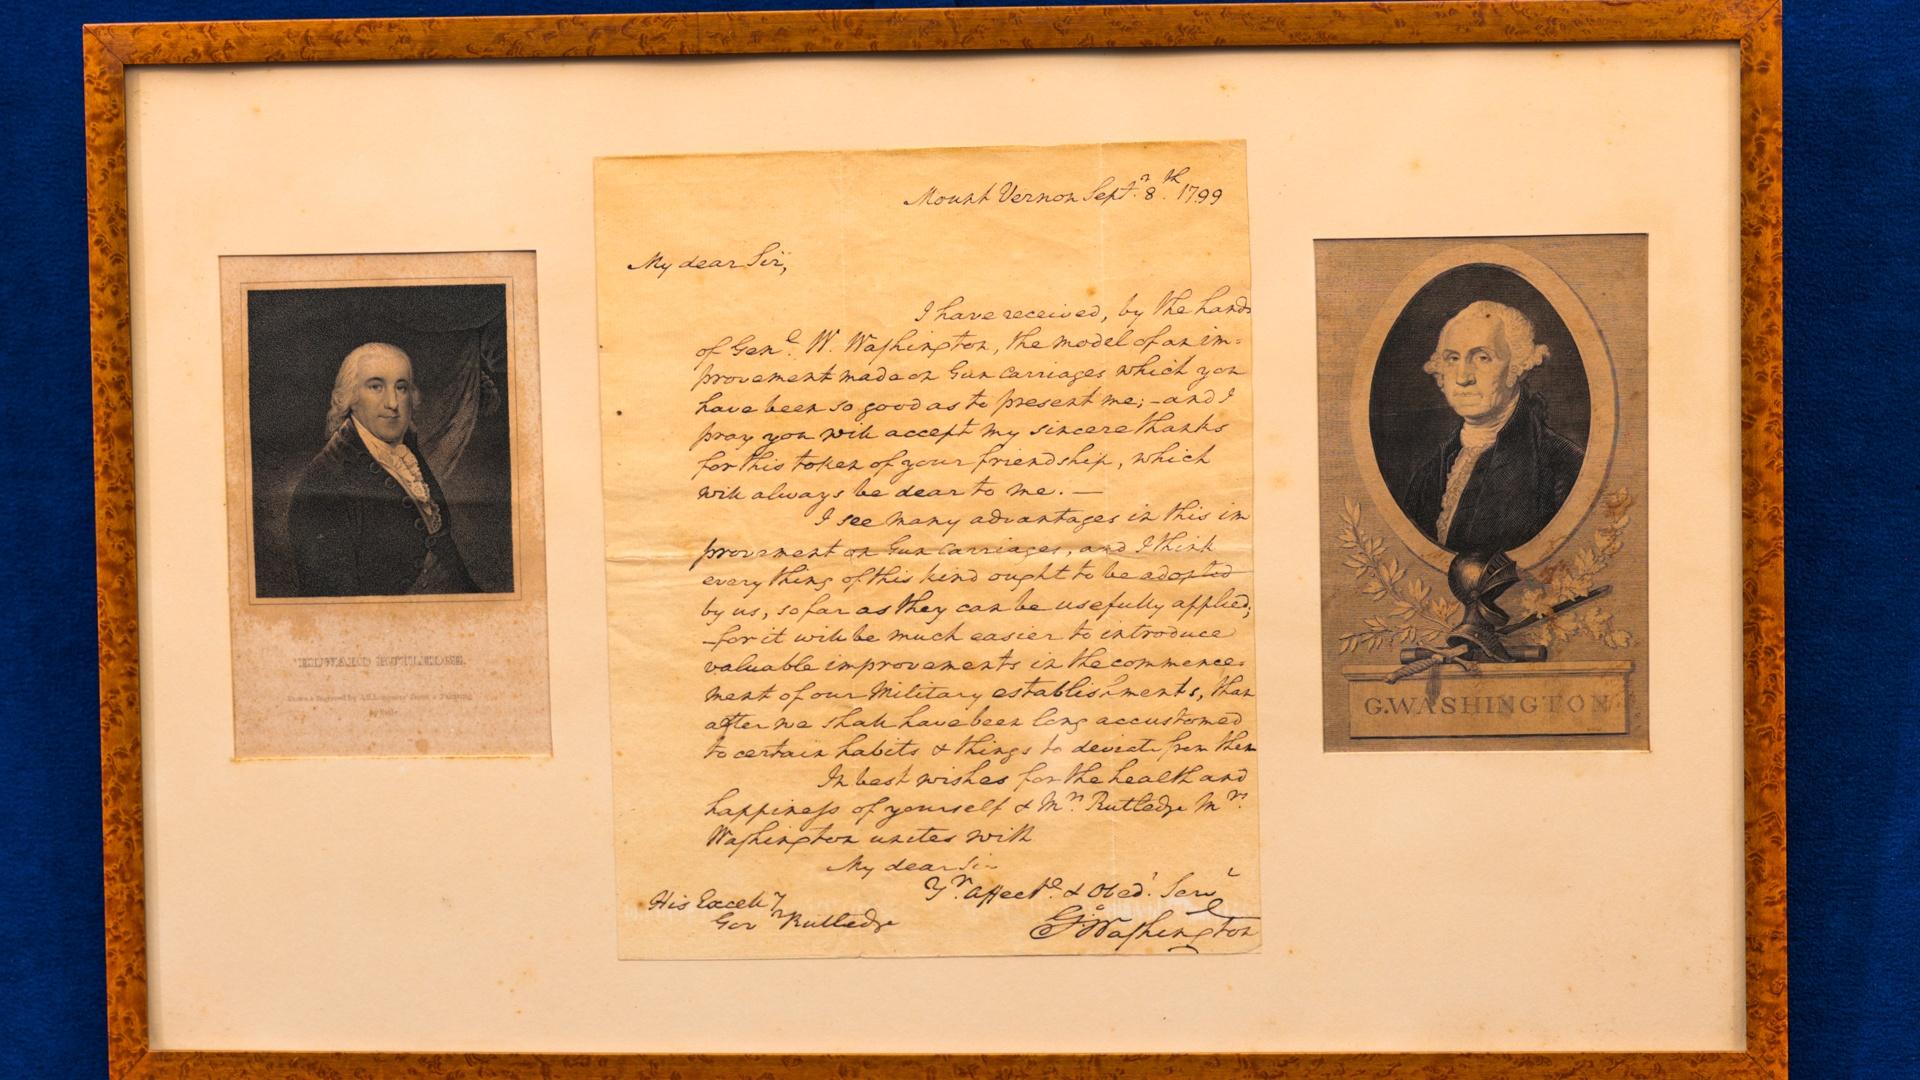 Mount Vernon Sepr. 8th. 1799
My dear Sir,
I have received, by the hands
of Genl. W. Washington, the model of an im=
provement made on Gun Carriages which you
have been so good as to present me;—and I
pray you will accept my sincere thanks
for this token of your friendship, which
will always be dear to me.—
I see many advantages in this im
provement on Gun Carriages, and I think
every thing of this kind ought to be adopted
by us, so far as they can be usefully applied;
—for it will be much easier to introduce
valuable improvements in the commence=
ment of our Military establishments, than
after we shall have been long accustomed
to certain habits & things to deviate from them
In best wishes for the health and
happiness of yourself & Mrs. Rutledge Mrs.
Washington unites with
My dear Sir
Yr. Affecte. & Obed. Servt
His Excelly
Govr Rutledge
Go. Washington
EDWARD RUTLEDGE.
Drawn & Engraved by from a Painting
by Earle
G.WASHINGTON